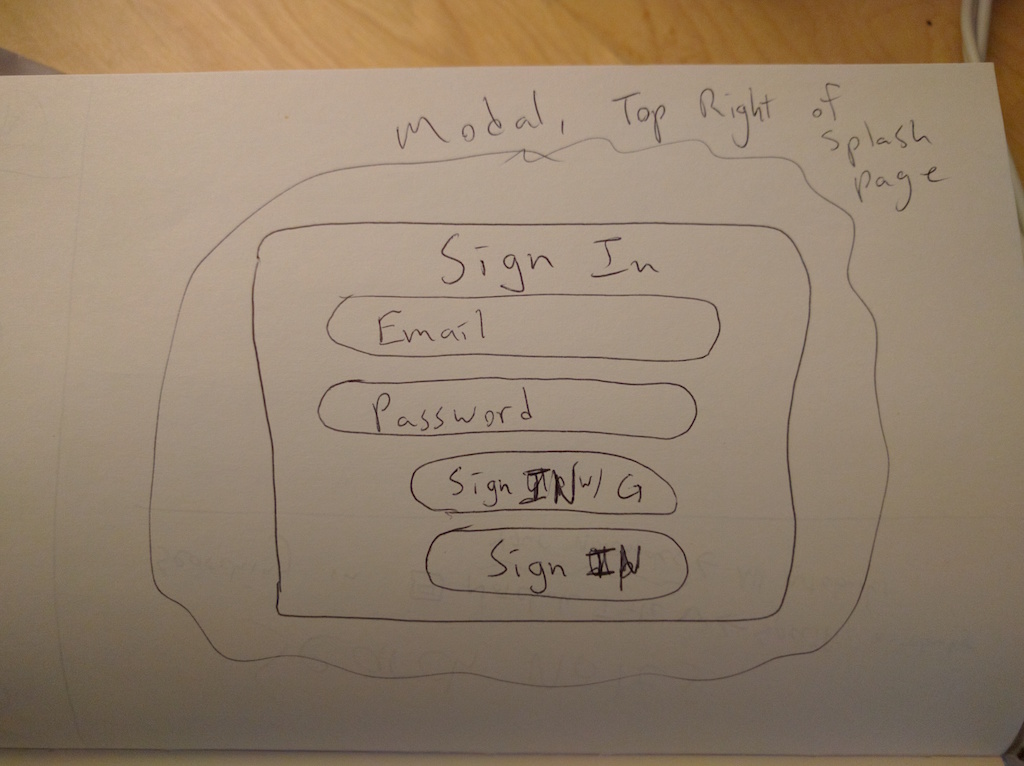 Modal, Top Right of
splash
page
Sign In
Email
Password
Sign IN w/ G
Sign IN